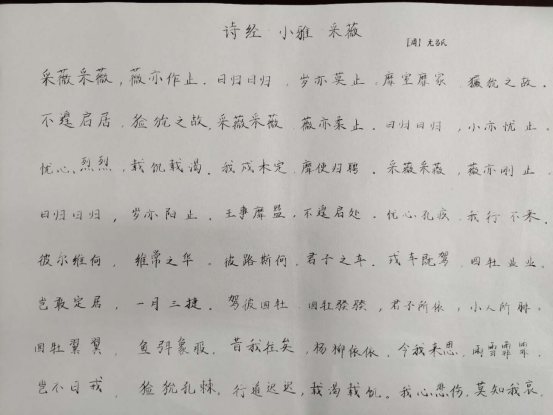 诗经 小雅 采薇
【周】无名氏
采薇采薇，薇亦作止．曰归曰归，岁亦莫止．靡室靡家．玁狁之故．
不遑启居．猃狁之故．采薇采薇．薇亦柔止．曰归曰归，心亦忧止．
忧心烈烈，载饥载渴．我戍未定．靡使归聘．采薇采薇，薇亦刚止．
曰归曰归，岁亦阳止．王事靡盬．不遑启处．忧心孔疚．我行不来．
彼尔维何，维常之华．彼路斯何．君子之车．戎车既驾．四牡业业．
岂敢定居．一月三捷．驾彼四牡．四牡骙骙，君子所依，小人所腓．
四牡翼翼，鱼弭象服．昔我往矣，杨柳依依．今我来思．雨雪霏霏．
岂不日戒．猃狁孔棘．行道迟迟，载渴载饥．我心悲伤，莫知我哀．